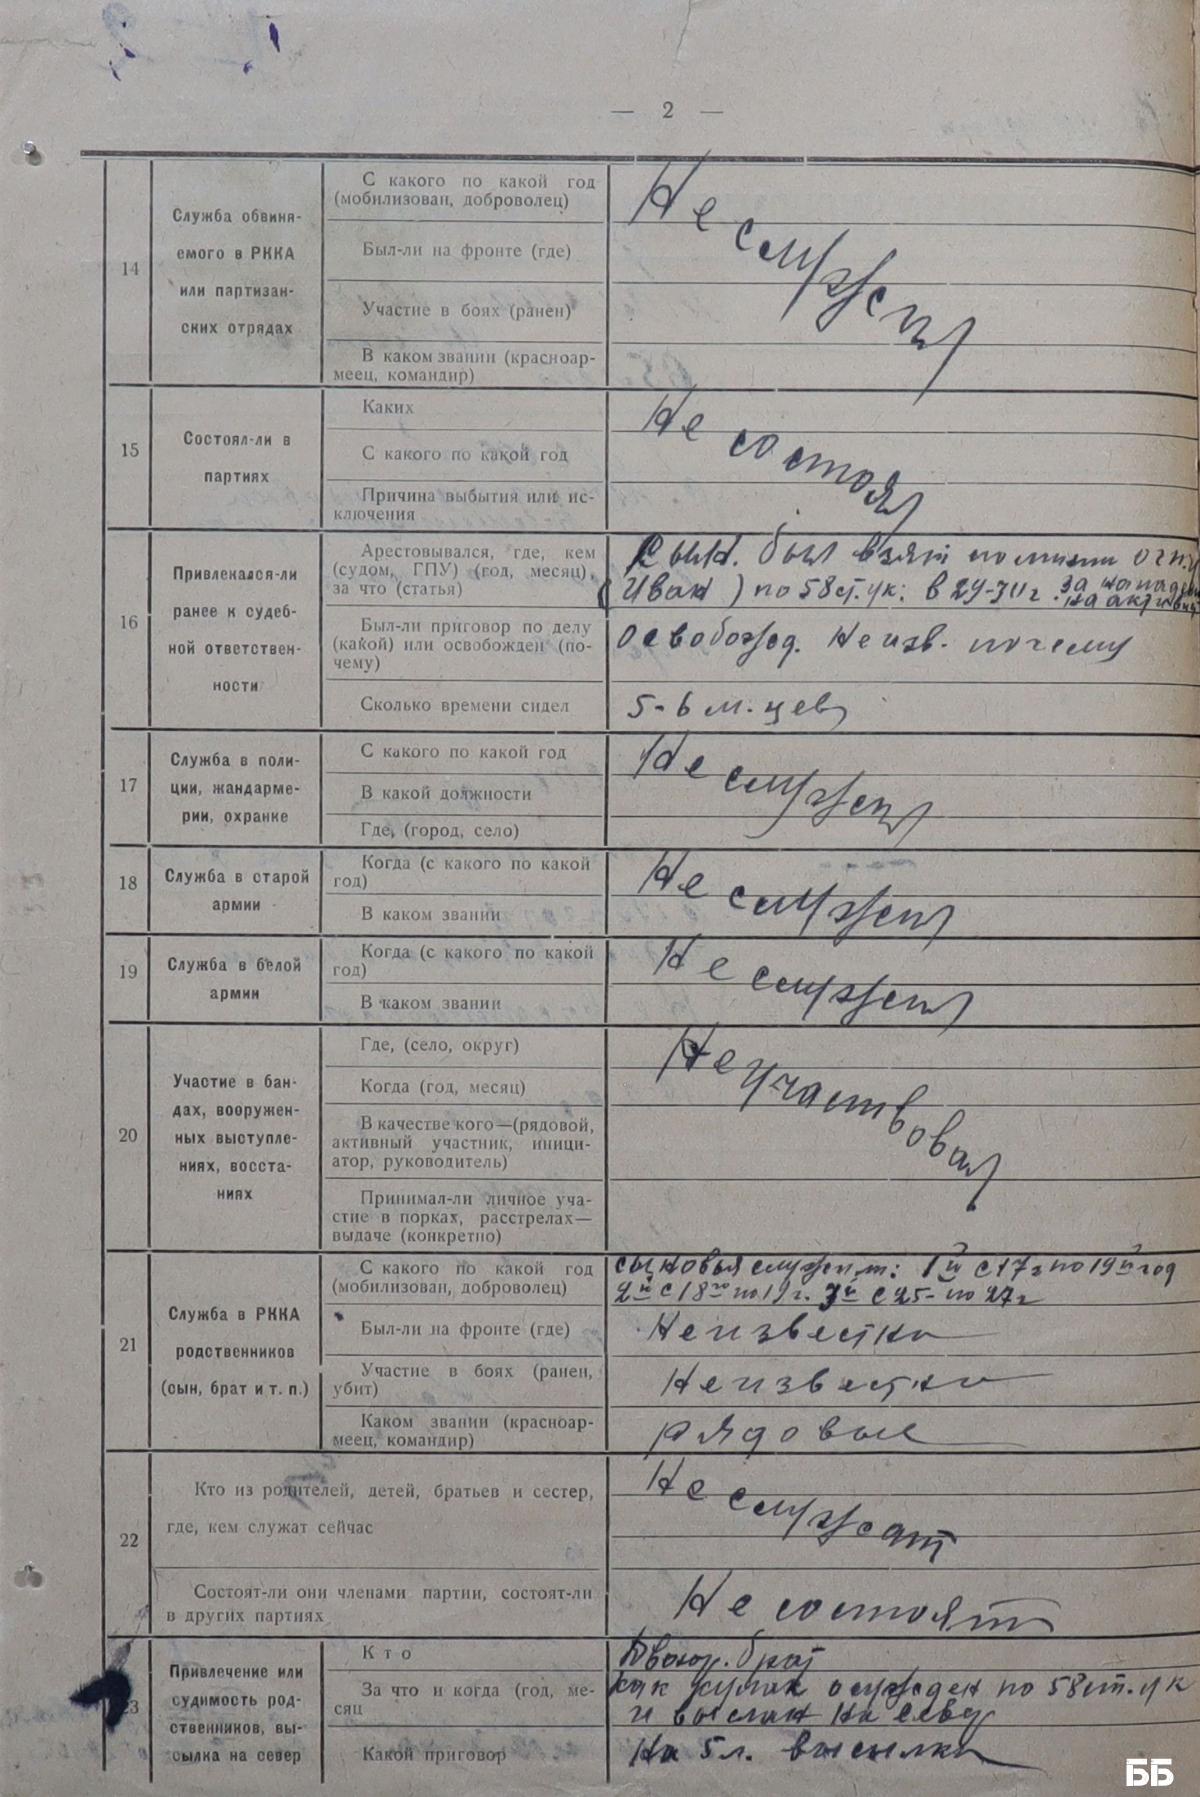 — 2 —
14
Служба обвиня-
емого в РККА
или партизан-
ских отрядах
С какого по какой год
(мобилизован, доброволец)
Был-ли на фронте (где)
Участие в боях (ранен)
В каком звании (красноар-
меец, командир)
Не служил
15
Состоял-ли в
партиях
Каких
С какого по какой год
Причина выбытия или ис-
ключения
Не состоял
16
Привлекался-ли
ранее к судеб-
ной ответствен-
ности
Арестовывался, где, кем
(судом, ГПУ) (год, месяц),
за что (статья)
Сын. был взят по линии огпу
(Иван) по 58 ст. ук: в 29-30 г. за нападен
на активи
Был-ли приговор по делу
(какой) или освобожден (по-
чему)
Освобожд. Неизв. почему
Сколько времени сидел
5-6 м-цев
17
Служба в поли-
ции, жандарме-
рии, охранке
С какого по какой год
В какой должности
Где, (город, село)
Не служил
18
Служба в старой
армии
Когда (с какого по какой
год)
В каком звании
Не служил
19
Служба в белой
армии
Когда (с какого по какой
год)
В каком звании
Не служил
20
Участие в бан-
дах, вооружен-
ных выступле-
ниях, восста-
ниях
Где, (село, округ)
Когда (год, месяц)
В качестве кого—(рядовой,
активный участник, иници-
атор, руководитель)
Принимал-ли личное уча-
стие в порках, расстрелах—
выдаче (конкретно)
Не участвовал
21
Служба в РККА
родственников
(сын, брат и т. п.)
С какого по какой год
(мобилизован, доброволец)
сыновья служит: 1й с 17 г по 19й год
2й с 18го по 19 г. 3й с 25- по 27 г
Был-ли на фронте (где)
Неизвестно
Участие в боях (ранен,
убит)
Неизвестно
Каком звании (красноар-
меец, командир)
рядовые
22
Кто из родителей, детей, братьев и сестер,
где, кем служат сейчас
Не служат
Состоят-ли они членами партии, состоят-ли
в других партиях
Не состоят
23
Привлечение или
судимость род-
ственников, вы-
сылка на север
Кто
Двоюр. брат
За что и когда (год, ме-
сяц)
как кулак осужден по 58 ст. ук
и выслан на север
Какой приговор
На 5 л. высылки
ББ